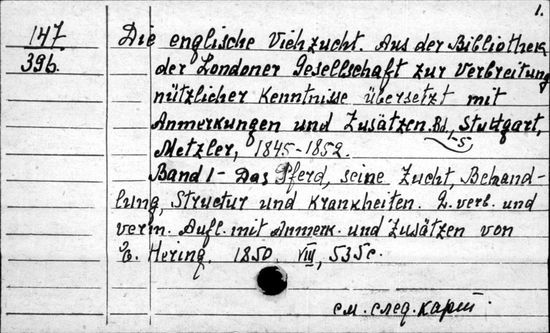 1.
147
396.
Die englische Viehzucht. Aus der Bibliothek
der Londoner Gesellschaft zur Verbreitung
nützlicher Kenntnisse übersetzt mit
Anmerkungen und Zusätzen. Bd. 1-5 Stuttgart,
Metzler, 1845-1852.
Band 1 - Das Pferd, seine Zucht, Behand-
lung, Structur und Krankheiten. 2. verb. und
verm. Aufl. mit Anmerk. und Zusätzen von
E. Hering. 1850. VIII, 535 c.
см. след. карт.